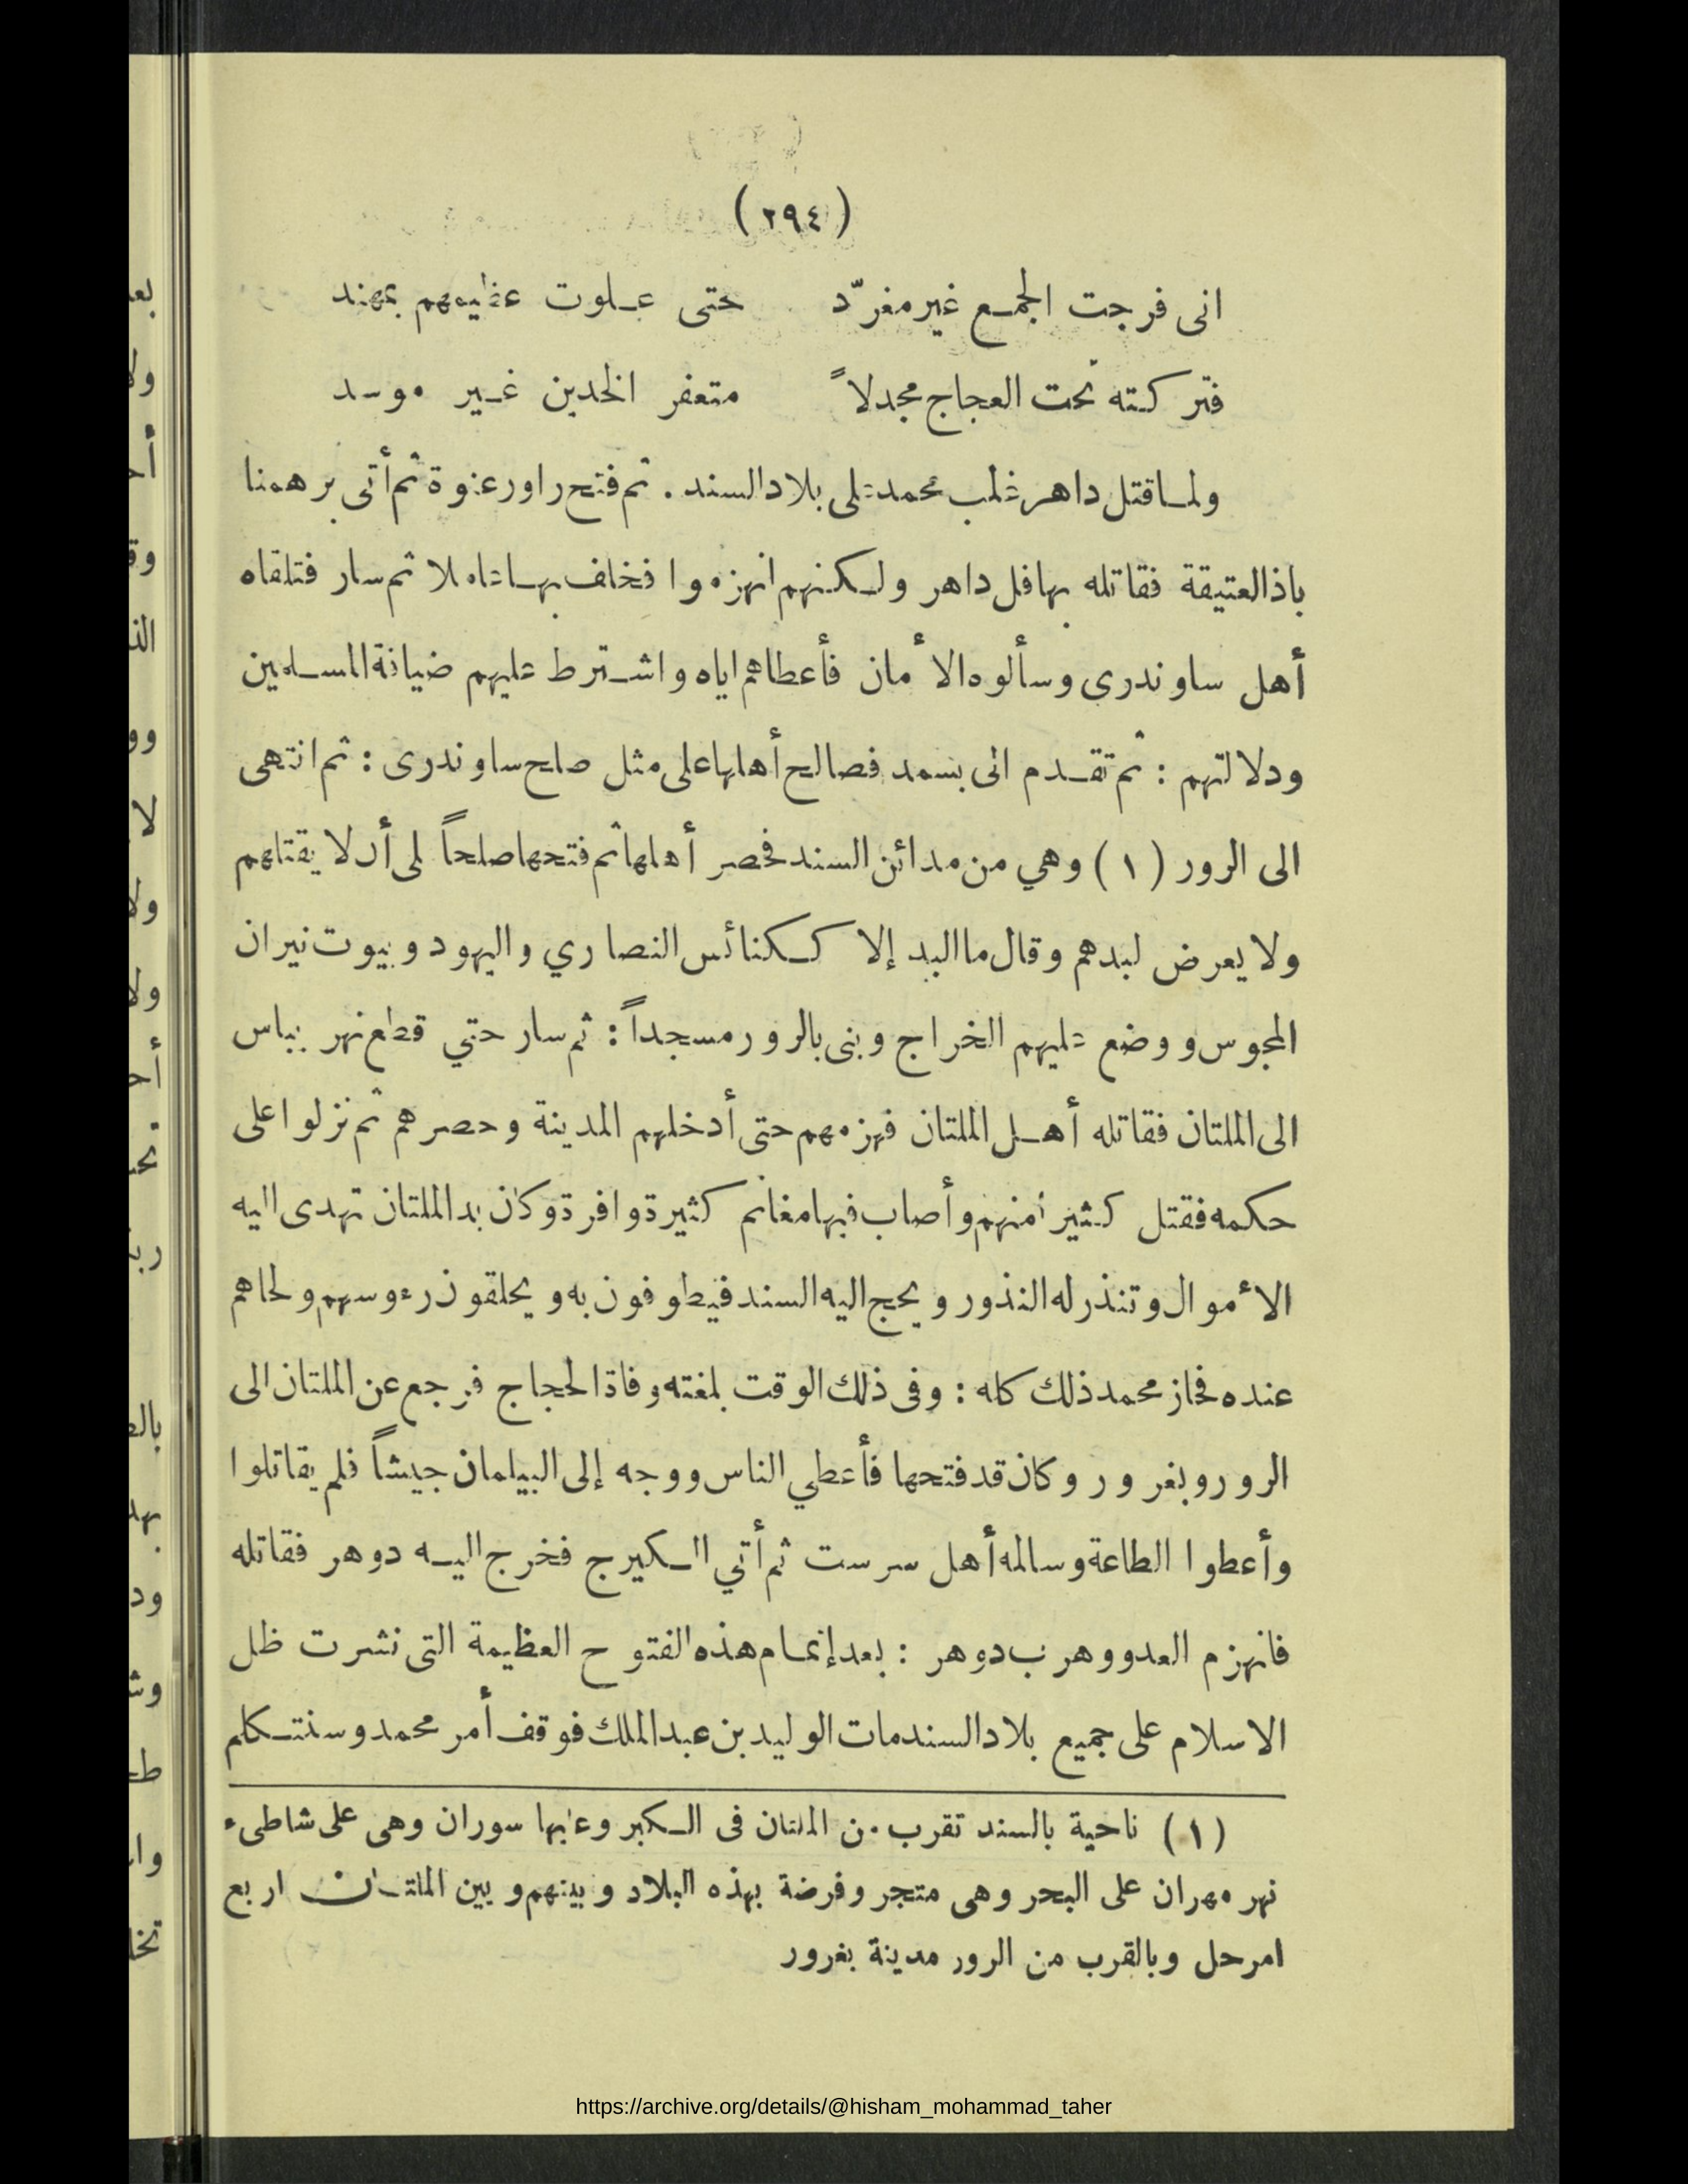 (٢٩٤)
انى فرجت الجمع غير مغرّد حتى علوت عظيمهم بمهند
فتركته تحت العجاج مجدلاً متعفر الخدين غير موسد
ولما قتل داهر غلب محمد على بلاد السند . ثم فتح راور عنوة ثم أتى برهمنا
باذ العتيقة فقاتله بها فل داهر ولكنهم انهزموا فخلف بها عاملا ثم سار فتلقاه
أهل ساوندرى وسألوه الأمان فأعطاهم اياه واشترط عليهم ضيافة المسلمين
ودلالتهم : ثم تقدم الى بسمد فصالح أهلها على مثل صلح ساوندرى : ثم انتهى
الى الرور (١) وهي من مدائن السند فحصر أهلها ثم فتحها صلحاً على أن لا يقتلهم
ولا يعرض لبدهم وقال ما البد إلا ككنائس النصاري واليهود وبيوت نيران
المجوس ووضع عليهم الخراج وبنى بالرور مسجداً : ثم سار حتي قطع نهر بياس
الى الملتان فقاتله أهل الملتان فهزمهم حتى أدخلهم المدينة وحصرهم ثم نزلوا على
حكمه فقتل كثيرا منهم وأصاب فيها مغانم كثيرة وافرة وكان بد الملتان تهدى اليه
الأموال وتنذر له النذور ويحج اليه السند فيطوفون به ويحلقون رءوسهم ولحاهم
عنده فحاز محمد ذلك كله : وفى ذلك الوقت بلغته وفاة الحجاج فرجع عن الملتان الى
الرور وبغرور وكان قد فتحها فأعطي الناس ووجه إلى البيلمان جيشاً فلم يقاتلوا
وأعطوا الطاعة وسالمه أهل سرست ثم أتي الكيرج فخرج اليه دوهر فقاتله
فانهزم العدو وهرب دوهر : بعد إتمام هذه الفتوح العظيمة التى نشرت ظل
الاسلام على جميع بلاد السند مات الوليد بن عبد الملك فوقف أمر محمد وسنتكلم
(١) ناحية بالسند تقرب من الملتان فى الكبر وعليها سوران وهى على شاطىء
نهر مهران على البحر وهى متجر وفرضة بهذه البلاد وبينهم وبين الملتان اربع
امرحل وبالقرب من الرور مدينة بغرور
https://archive.org/details/@hisham_mohammad_taher